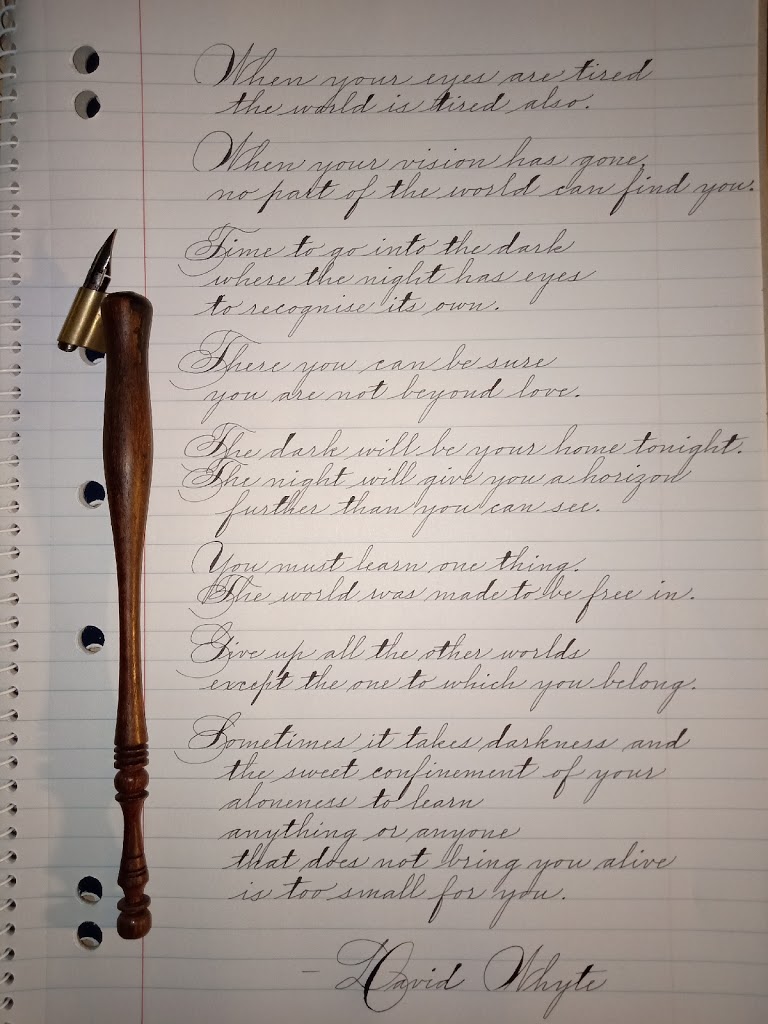 When your eyes are tired
the world is tired also.
When your vision has gone,
no part of the world can find you.
Time to go into the dark
where the night has eyes
to recognise its own.
There you can be sure
you are not beyond love.
The dark will be your home tonight.
The night will give you a horizon
further than you can see.
You must learn one thing.
The world was made to be free in.
Give up all the other worlds
except the one to which you belong.
Sometimes it takes darkness and
the sweet confinement of your
aloneness to learn
anything or anyone
that does not bring you alive
is too small for you.
- David Whyte